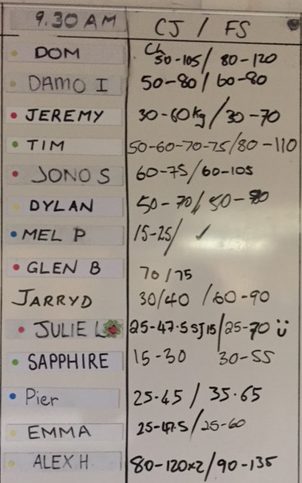 9.30 AM CJ / FS
DOM Ch 50-105 / 80-120
DAMO I 50-80 / 60-80
JEREMY 30-60kg / 30-70
TIM 50-60-70-75 / 80-110
JONO S 60-75 / 60-105
DYLAN 50-70 / 50-80
MEL P 15-25 / ✓
GLEN B 70 / 75
JARRYD 30/40 / 60-90
JULIE L 25-47.5 SJ15 / 25-70 ü
SAPPHIRE 15-30 30-55
Pier 25.45 / 35.65
EMMA 25-47.5 / 25-60
ALEX H 80-120x2 / 90-135